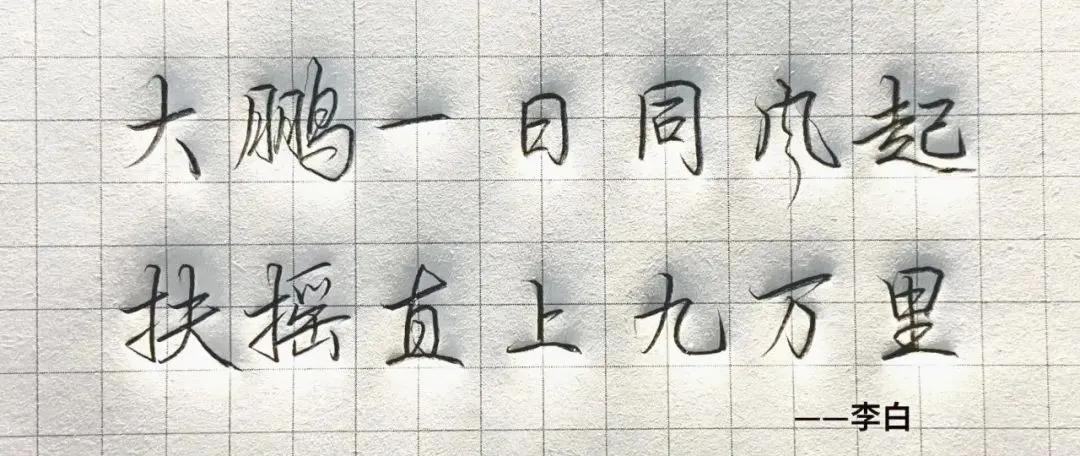 大鹏一日同风起
扶摇直上九万里
——李白